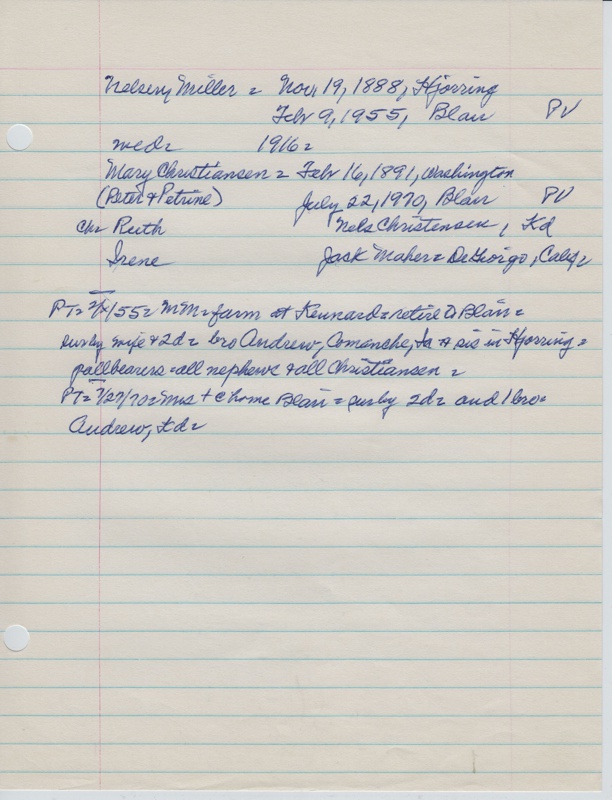 Miller = Nov, 19, 1888, Hjorring
Feb 9, 1955, Blair PV
med= 1916=
Mary Christiansen = Feb 16, 1891, Washington
(Peter & Petrine) July 22, 1970, Blair PV
Chr Ruth Nels Christensen, Kd
Irene Jack Maher = DeGiorgo, Calif=
PT= /55= Mr M= farm at Kennard= retire to Blair=
sur by wife & 2d= bro Andrew, Comanche, Ia & sis in Hjorring=
pallbearers = all nephews & all Christiansen =
PT= 7/27/70= Mrs + @ home Blair = sur by 2d= and 1 bro=
Andrew, Kd=